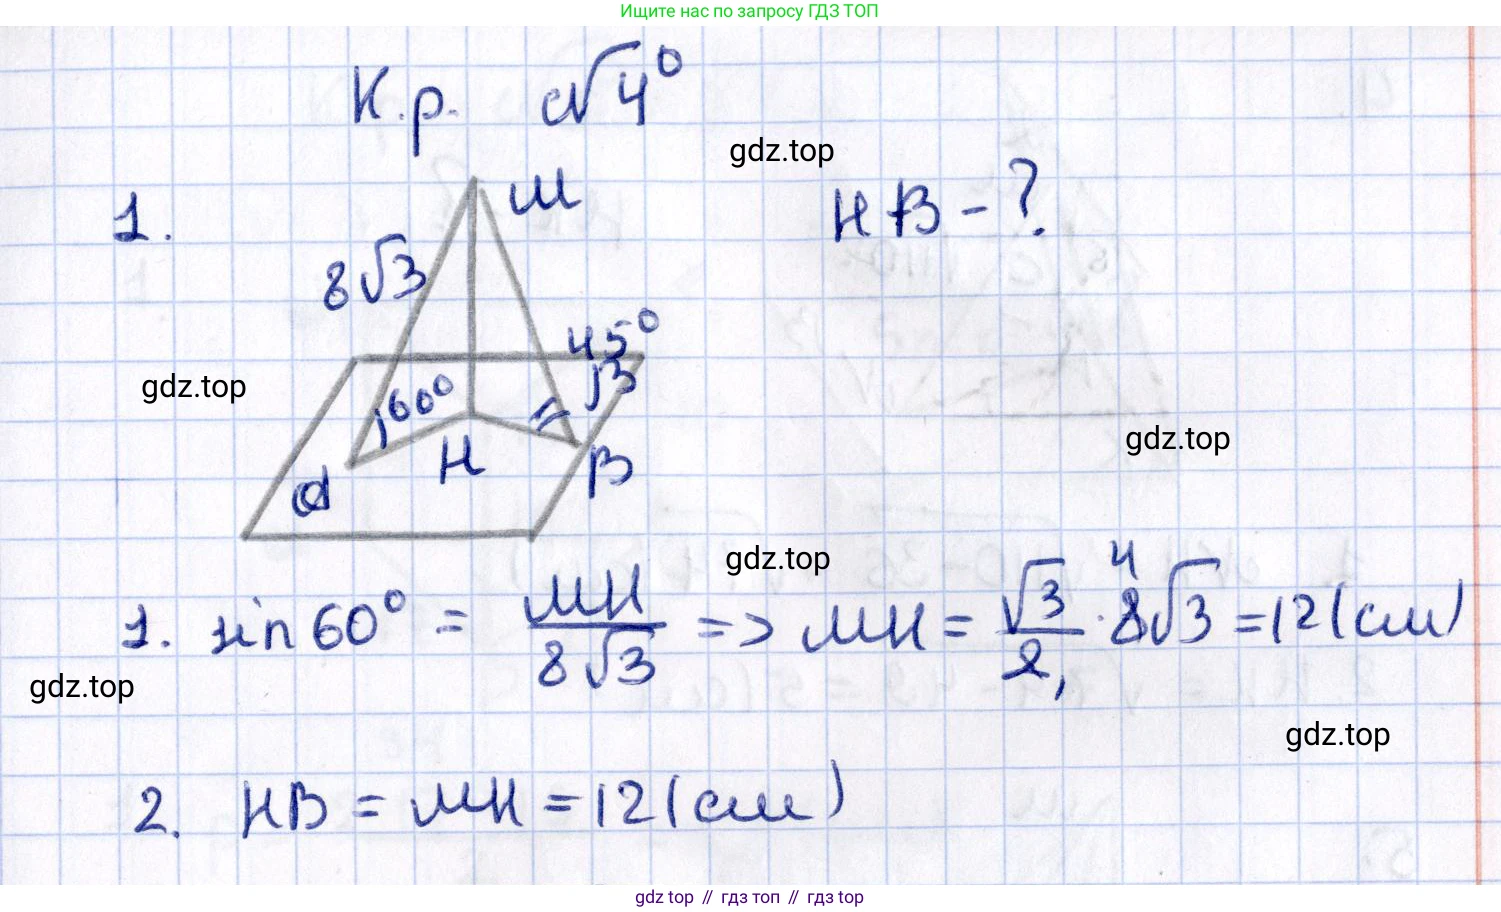 Ищите нас по запросу ГДЗ ТОП
К.р. №4°
gdz.top
1.
М
НВ - ?
8√3
45°
gdz.top
60°
gdz.top
Н
В
А
gdz.top
1. sin 60° = МН / 8√3 => МН = √3 / 2 · 8√3 = 12 (см)
4
gdz.top
gdz.top
2. НВ = МН = 12 (см)
gdz top // гдз топ // гдз top